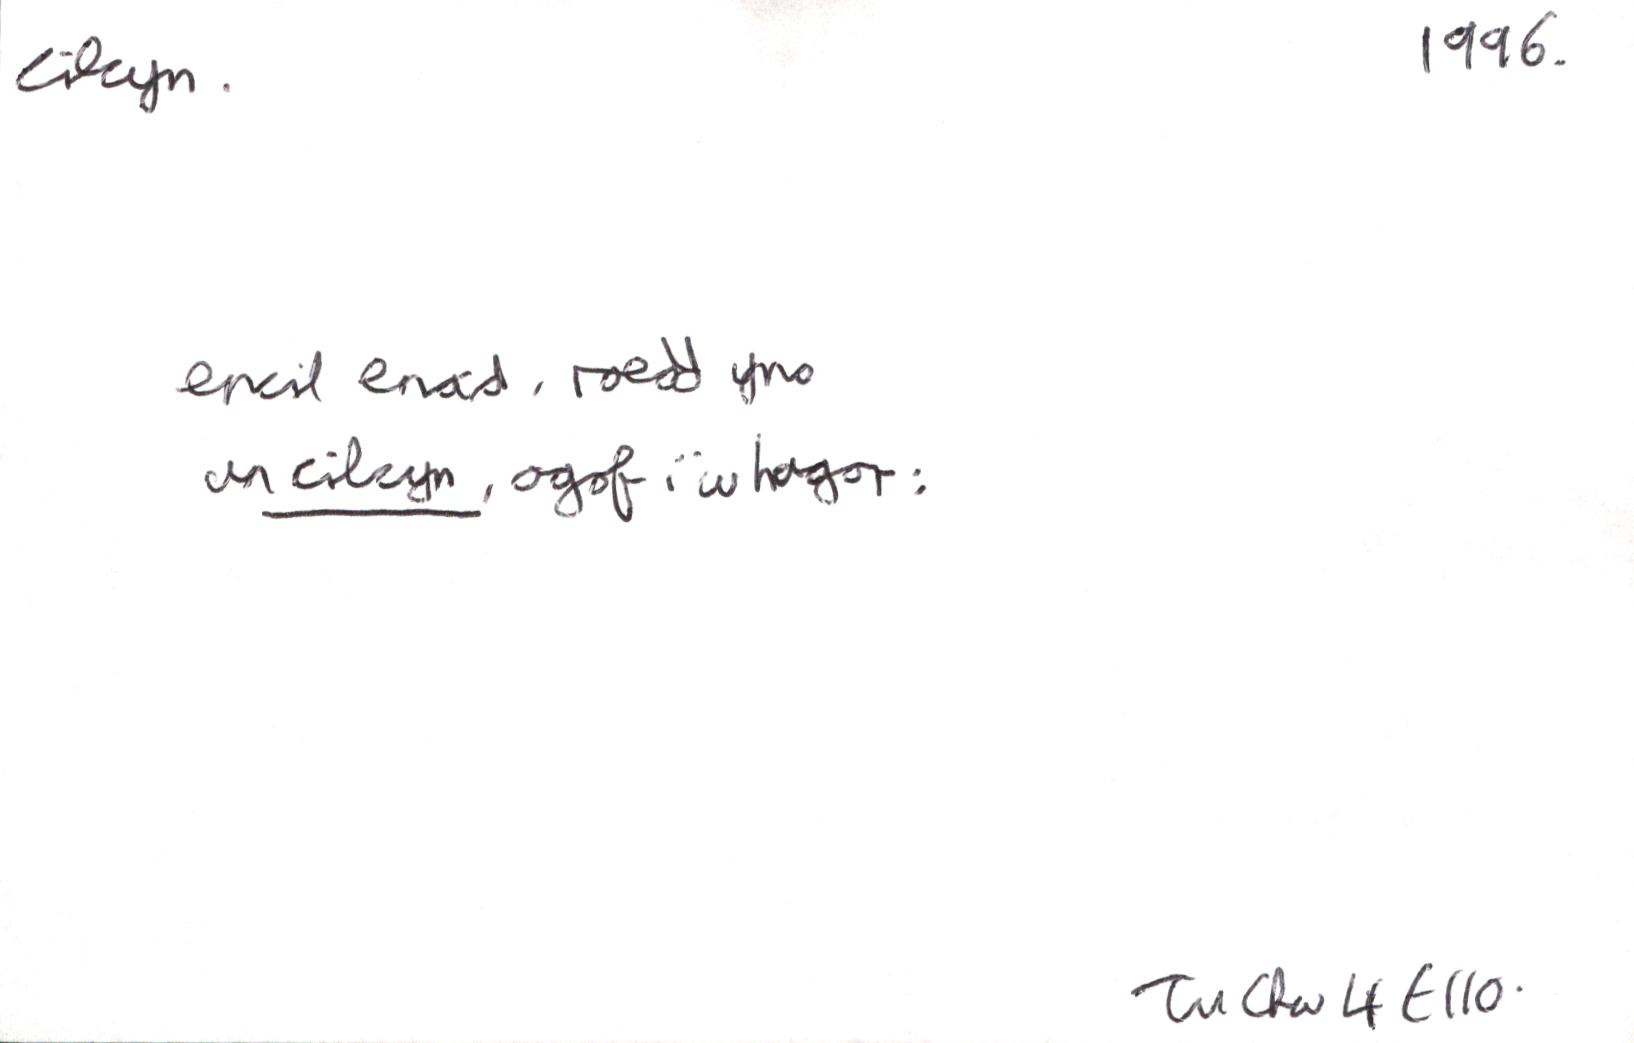 cilcyn. 1996.
encil enaid, roedd yno
un cilcyn, ogof i'w hagor:
Tu Chw 4 E110.